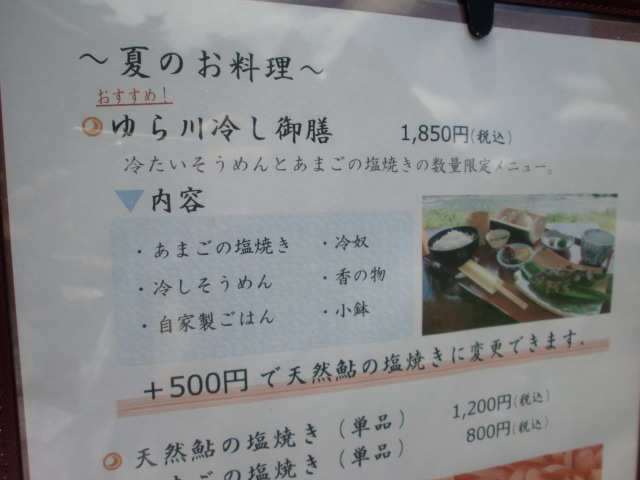 ～夏のお料理～
おすすめ！
ゆら川冷し御膳 1,850円(税込)
冷たいそうめんとあまごの塩焼きの数量限定メニュー。
▼内容
・あまごの塩焼き ・冷奴
・冷しそうめん ・香の物
・自家製ごはん ・小鉢
＋500円で天然鮎の塩焼きに変更できます。
天然鮎の塩焼き（単品） 1,200円(税込)
まごの塩焼き（単品） 800円(税込)